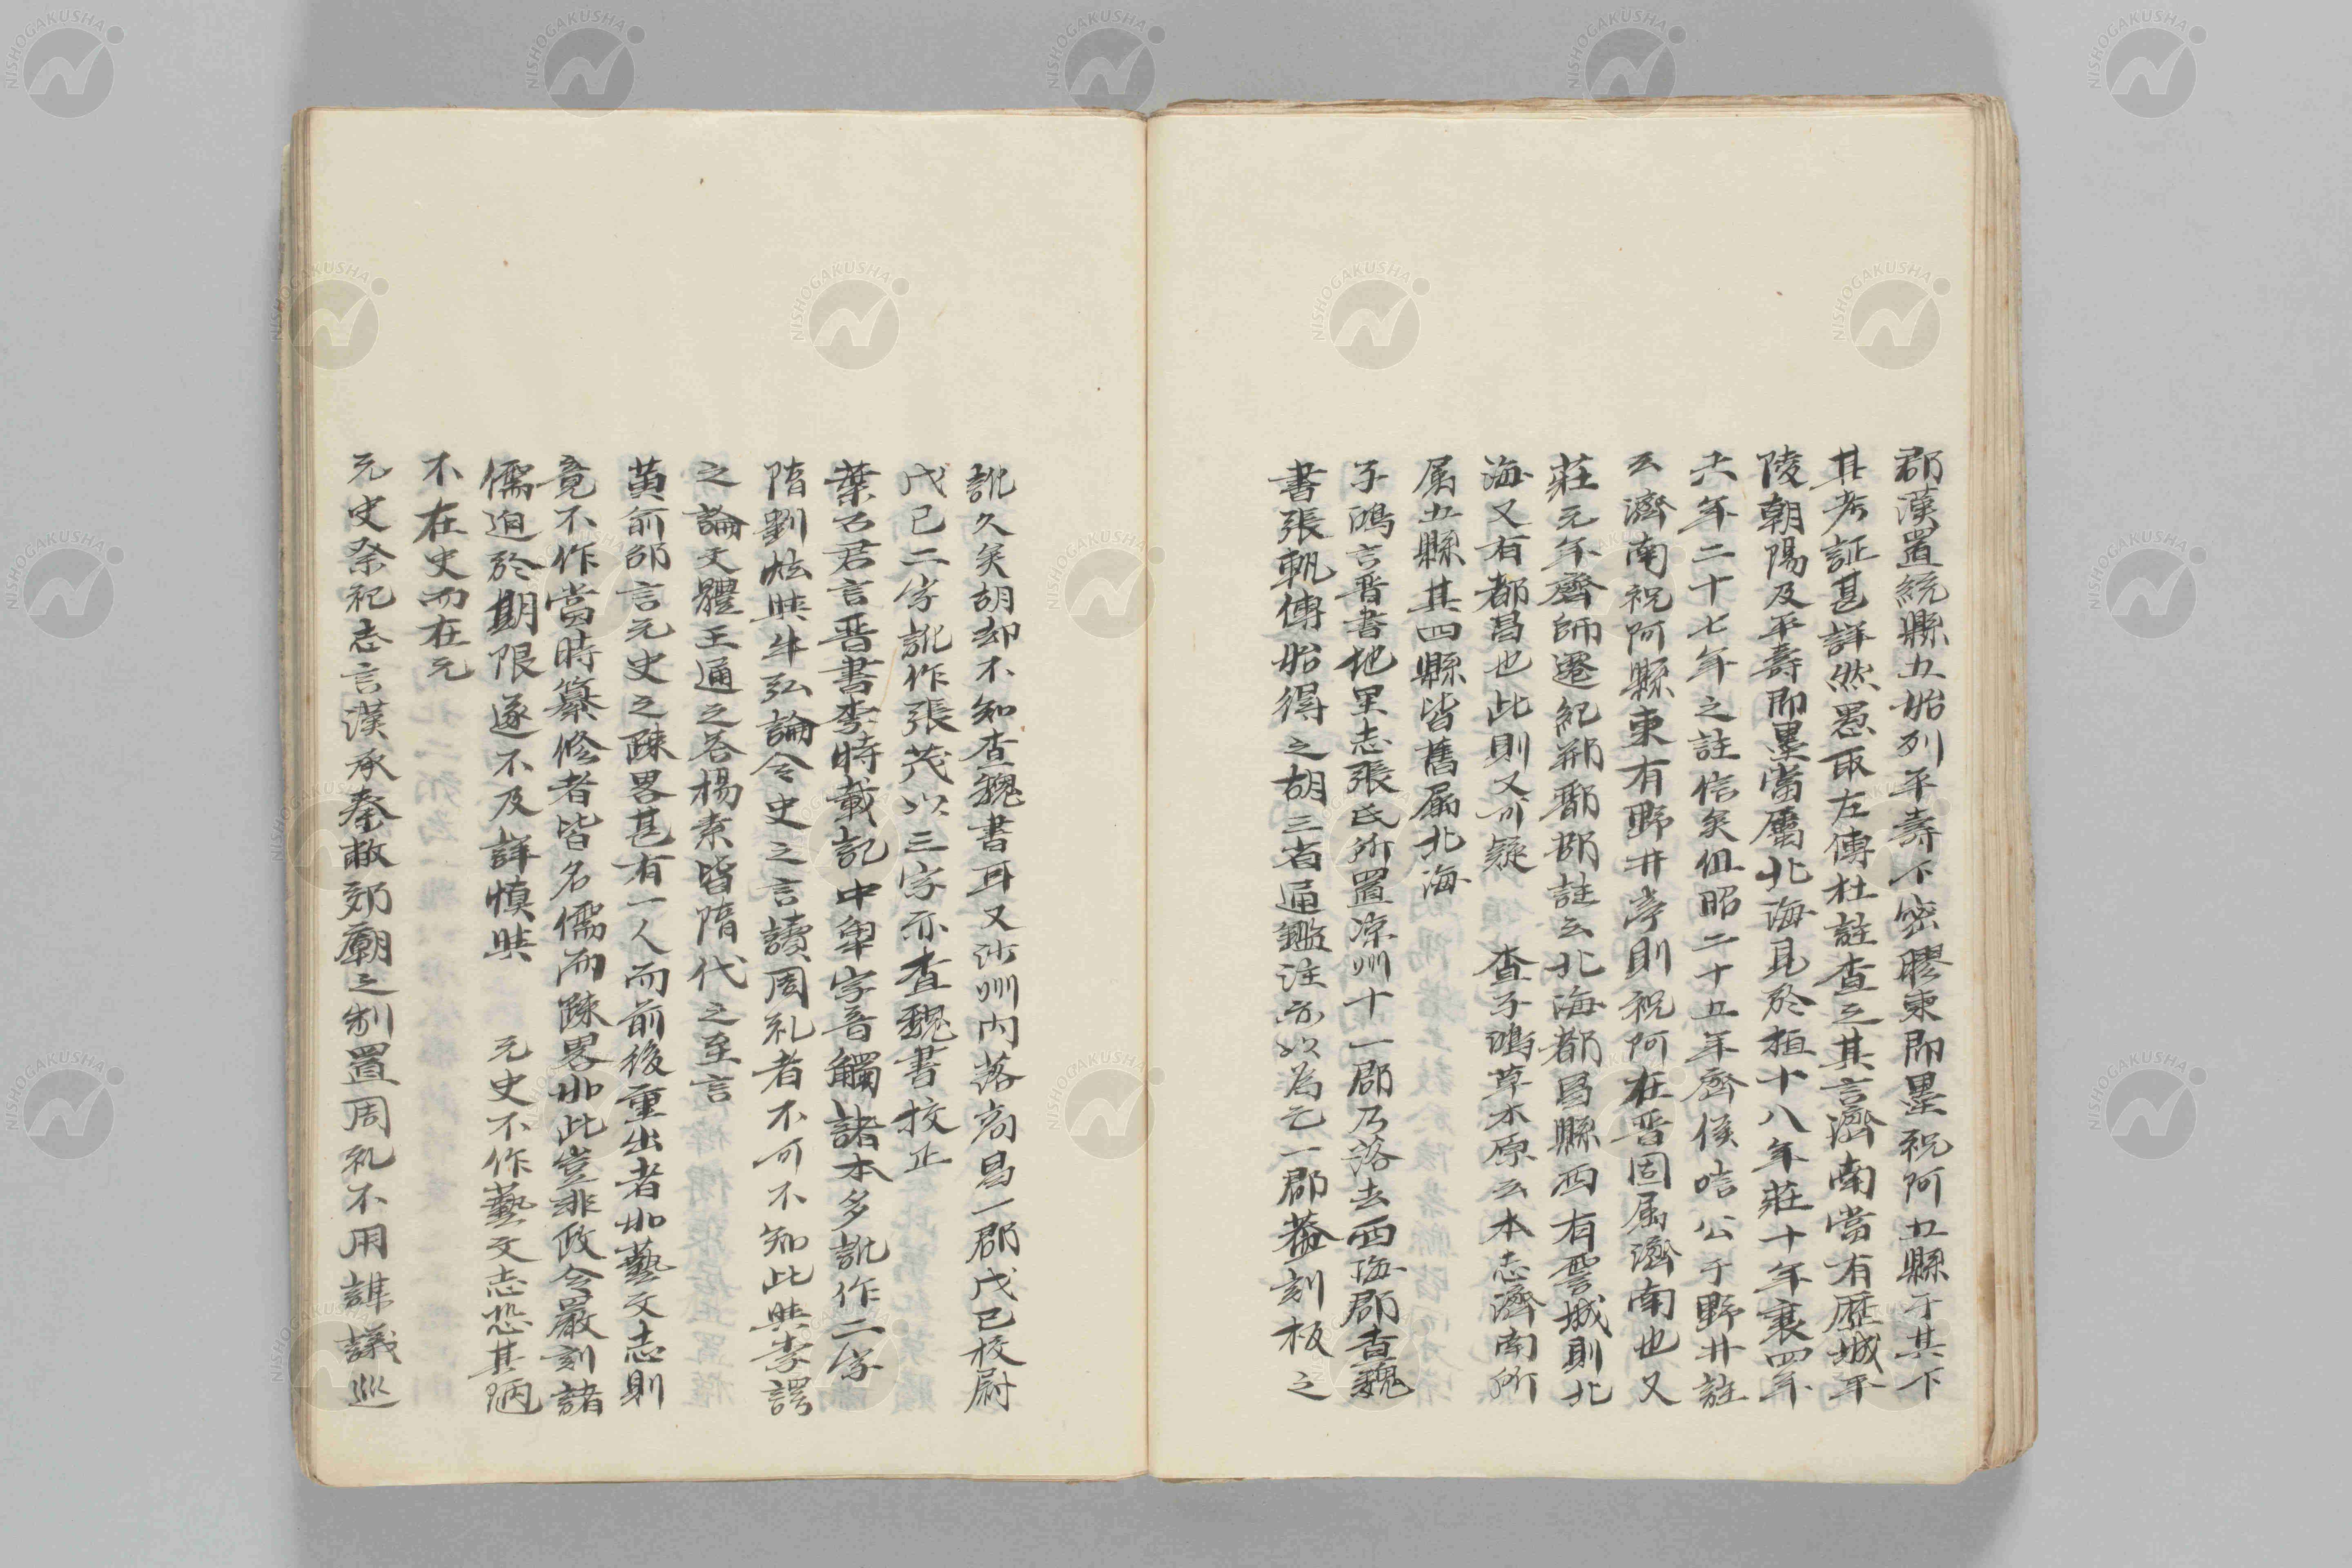 郡漢置統縣五始列平壽下密膠東即墨祝阿五縣于其下
其考証甚詳然愚取左傳杜註查之其言濟南當有歷城平
陵朝陽及平壽即墨當屬北海見於桓十八年莊十年襄四年
六年二十七年之註信矣但昭二十五年齊侯唁公于野井註
云濟南祝阿縣東有野井亭則祝阿在晋固属濟南也又
莊元年齊師遷紀郱鄑郚註云北海都昌縣西有訾城則北
海又有都昌也此則又可疑　查子鴻草本原云本志濟南所
属五縣其四縣皆舊屬北海
子鴻言晋書地里志張氏所置涼州十一郡乃落去西海郡查魏
書張軌傳始得之胡三省通鑑注亦以為乞一郡葢刻板之
訛久矣胡却不知查魏書耳又沙州内落高昌一郡戊已校尉
戊已二字訛作張茂以三字亦查魏書挍正
葉石君言晋書李特載記中㕙字音觸諸本多訛作二字
隋劉炫與牛弘論令史之言讀周礼者不可不知此與李諤
之論文體王通之答楊素皆隋代之至言
黄俞邰言元史之疎畧甚有一人而前後重出者如藝文志則
竟不作當時纂修者皆名儒而疎畧如此豈非政令嚴刻諸
儒迫於期限遂不及詳慎與　元史不作藝文志恐其陋
不在史而在元
元史祭祀志言漢承秦敝郊廟之制置周礼不用謀議巡